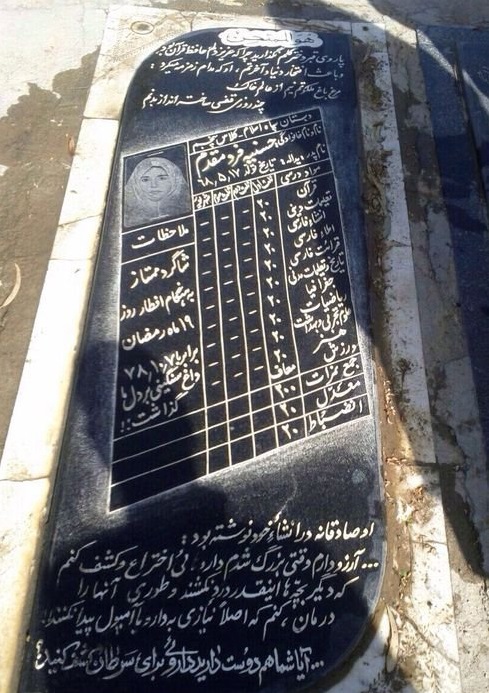 هو المنتخب
پا روی قبر دخترکم نگذارید چرا که عزیز دلم حافظ قرآن بود
و باعث افتخار دنیا و آخرتم، او که مدام زمزمه میکرد:
مرغ باغ ملکوتم نیم از عالم خاک
چند روزی قفسی ساخته‌اند از بدنم
دبستان سپاه اسلام - کلاس پنجم
نام و نام خانوادگی: حسنیه فرد مقدم
نام پدر: یداله تاریخ تولد ۶۸,۵,۱۷
مواد درسی
قرآن ۲۰ - - -
تعلیمات دینی ۲۰ - - -
انشاء فارسی ۲۰ - - -
املاء فارسی ۲۰ - - -
قرائت فارسی ۲۰ - - -
تاریخ و تعلیمات مدنی ۲۰ - - -
جغرافیا ۲۰ - - -
ریاضیات ۲۰ - - -
علوم تجربی و بهداشت ۲۰ - - -
هنر ۲۰ - - -
ورزش معاف - - -
جمع نمرات ۲۰۰
معدل ۲۰
انضباط ۲۰
ملاحظات
شاگرد ممتاز
به هنگام افطار روز
۱۹ ماه رمضان
برابر با ۷۸,۱۰,۷
داغ سنگینی بر دل ما
گذاشت!!
او صادقانه در انشاء خود نوشته بود:
... آرزو دارم وقتی بزرگ شدم داروئی اختراع و کشف کنم
که دیگر بچه‌ها اینقدر درد نکشند و طوری آنها را
درمان کنم که اصلاً نیازی به دارو یا آمپول پیدا نکنند!
... آیا شما هم دوست دارید داروئی برای سرطان کشف کنید؟